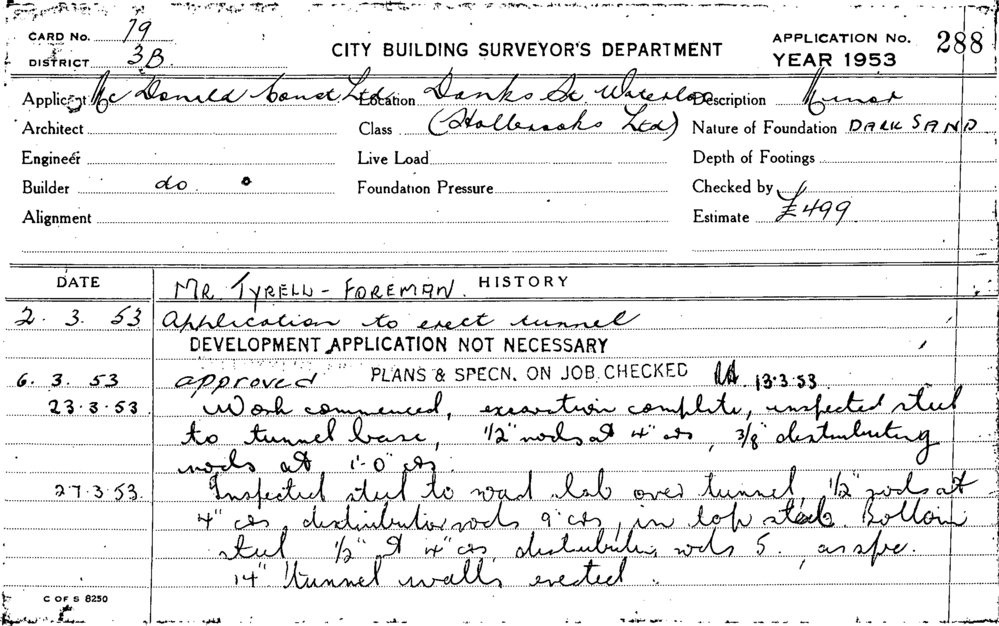 CARD No. 79
DISTRICT 3B
CITY BUILDING SURVEYOR'S DEPARTMENT
APPLICATION No. 288
YEAR 1953
Applicant Mc Donald Const Ltd Location Danks St. Waterloo Description Minor
Architect Class (Holbrooks Ltd) Nature of Foundation DARK SAND
Engineer Live Load Depth of Footings
Builder do Foundation Pressure Checked by
Alignment Estimate £499
DATE HISTORY
MR. TYRELL - FOREMAN.
2. 3. 53 Application to erect tunnel
DEVELOPMENT APPLICATION NOT NECESSARY
6. 3. 53 approved PLANS & SPECN. ON JOB CHECKED 13.3.53
23.3.53 Work commenced, excavation complete, inspected steel
to tunnel base, 1/2" rods at 4" crs, 3/8" distributing
rods at 1'-0" crs.
27.3.53. Inspected steel to road slab over tunnel, 1/2" rods at
4" crs, distribution rods 9" crs, in top steel. Bottom
steel 1/2" at 4" crs, distributing rods 5. as spec.
14" tunnel walls erected.
C OF S 8250